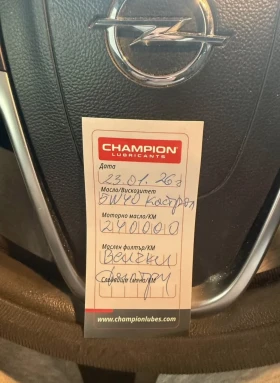 CHAMPION
LUBRICANTS
Дата
23.01.26г
Масло/Вискозитет
5W40 Кастрол
Моторно масло/КМ
240000
Маслен филтър/КМ
Всички
филтри
Следваща смяна/КМ
www.championlubes.com